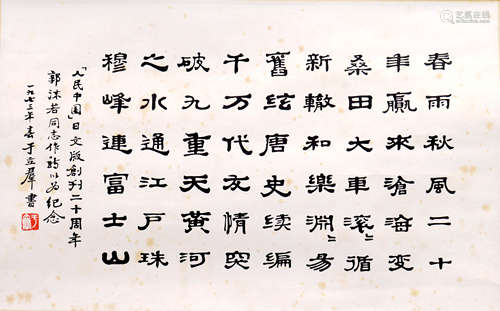 春雨秋風二十
年贏來滄海變
桑田大車滚〻循
新轍和樂淵〻易
舊絃唐史续編
千万代友情突
破九重天黃河
之水通江戶珠
穆峰連富士山
「人民中国」日文版創刊二十周年
郭沫若同志作詩以为纪念
一九七三年春于立羣書